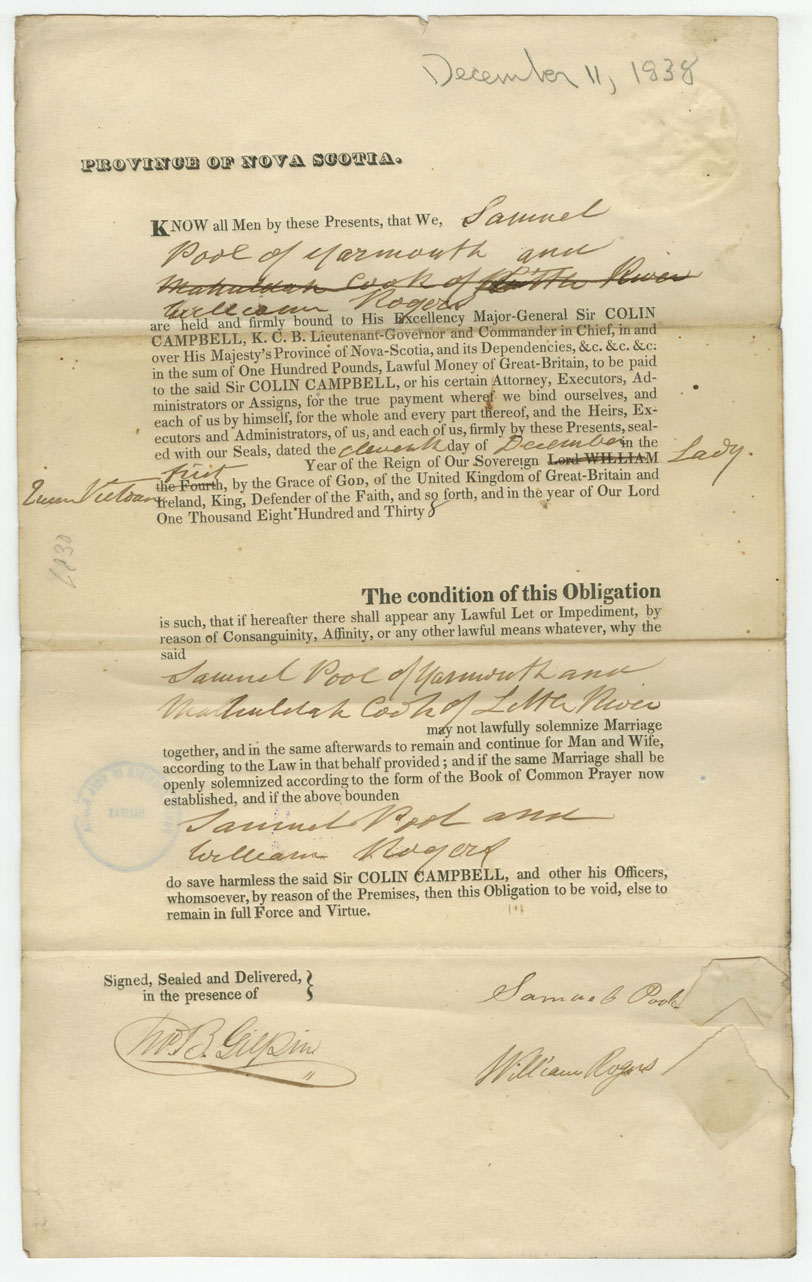 December 11, 1838
PROVINCE OF NOVA SCOTIA.
KNOW all Men by these Presents, that We, Samuel
Pool of Yarmouth and
Mahuldah Cook of Little River
William Rogers
are held and firmly bound to His Excellency Major-General Sir COLIN
CAMPBELL, K. C. B. Lieutenant-Governor and Commander in Chief, in and
over His Majesty's Province of Nova-Scotia, and its Dependencies, &c. &c. &c:
in the sum of One Hundred Pounds, Lawful Money of Great-Britain, to be paid
to the said Sir COLIN CAMPBELL, or his certain Attorney, Executors, Ad-
ministrators or Assigns, for the true payment whereof we bind ourselves, and
each of us by himself, for the whole and every part thereof, and the Heirs, Ex-
ecutors and Administrators, of us, and each of us, firmly by these Presents, seal-
ed with our Seals, dated the eleventh day of December in the
first Year of the Reign of Our Sovereign Lord WILLIAM Lady
Queen Victoria the Fourth, by the Grace of GOD, of the United Kingdom of Great-Britain and
Ireland, King, Defender of the Faith, and so forth, and in the year of Our Lord
One Thousand Eight Hundred and Thirty 8
The condition of this Obligation
is such, that if hereafter there shall appear any Lawful Let or Impediment, by
reason of Consanguinity, Affinity, or any other lawful means whatever, why the
said
Samuel Pool of Yarmouth and
Mahuldah Cook of Little River
may not lawfully solemnize Marriage
together, and in the same afterwards to remain and continue for Man and Wife,
according to the Law in that behalf provided; and if the same Marriage shall be
openly solemnized according to the form of the Book of Common Prayer now
established, and if the above bounden
Samuel Pool and
William Rogers
do save harmless the said Sir COLIN CAMPBELL, and other his Officers,
whomsoever, by reason of the Premises, then this Obligation to be void, else to
remain in full Force and Virtue.
Signed, Sealed and Delivered,
in the presence of
B. Gilpin
Samuel Pool
William Rogers